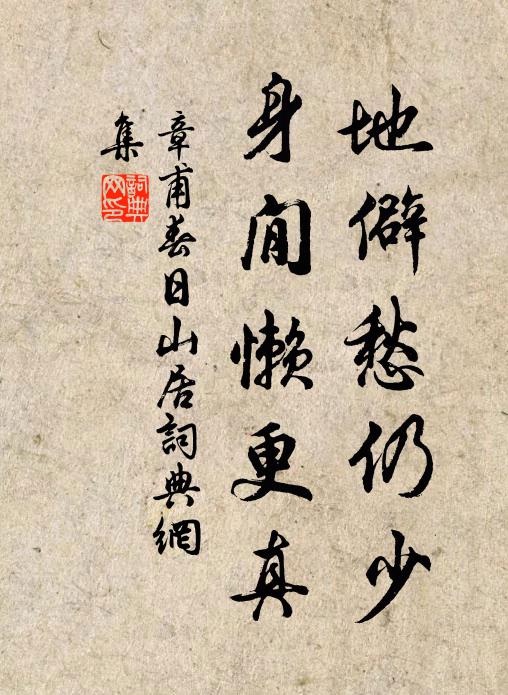 地僻愁仍少
身閒懶更真
章甫春日山居詞典網
集
詞典
网印